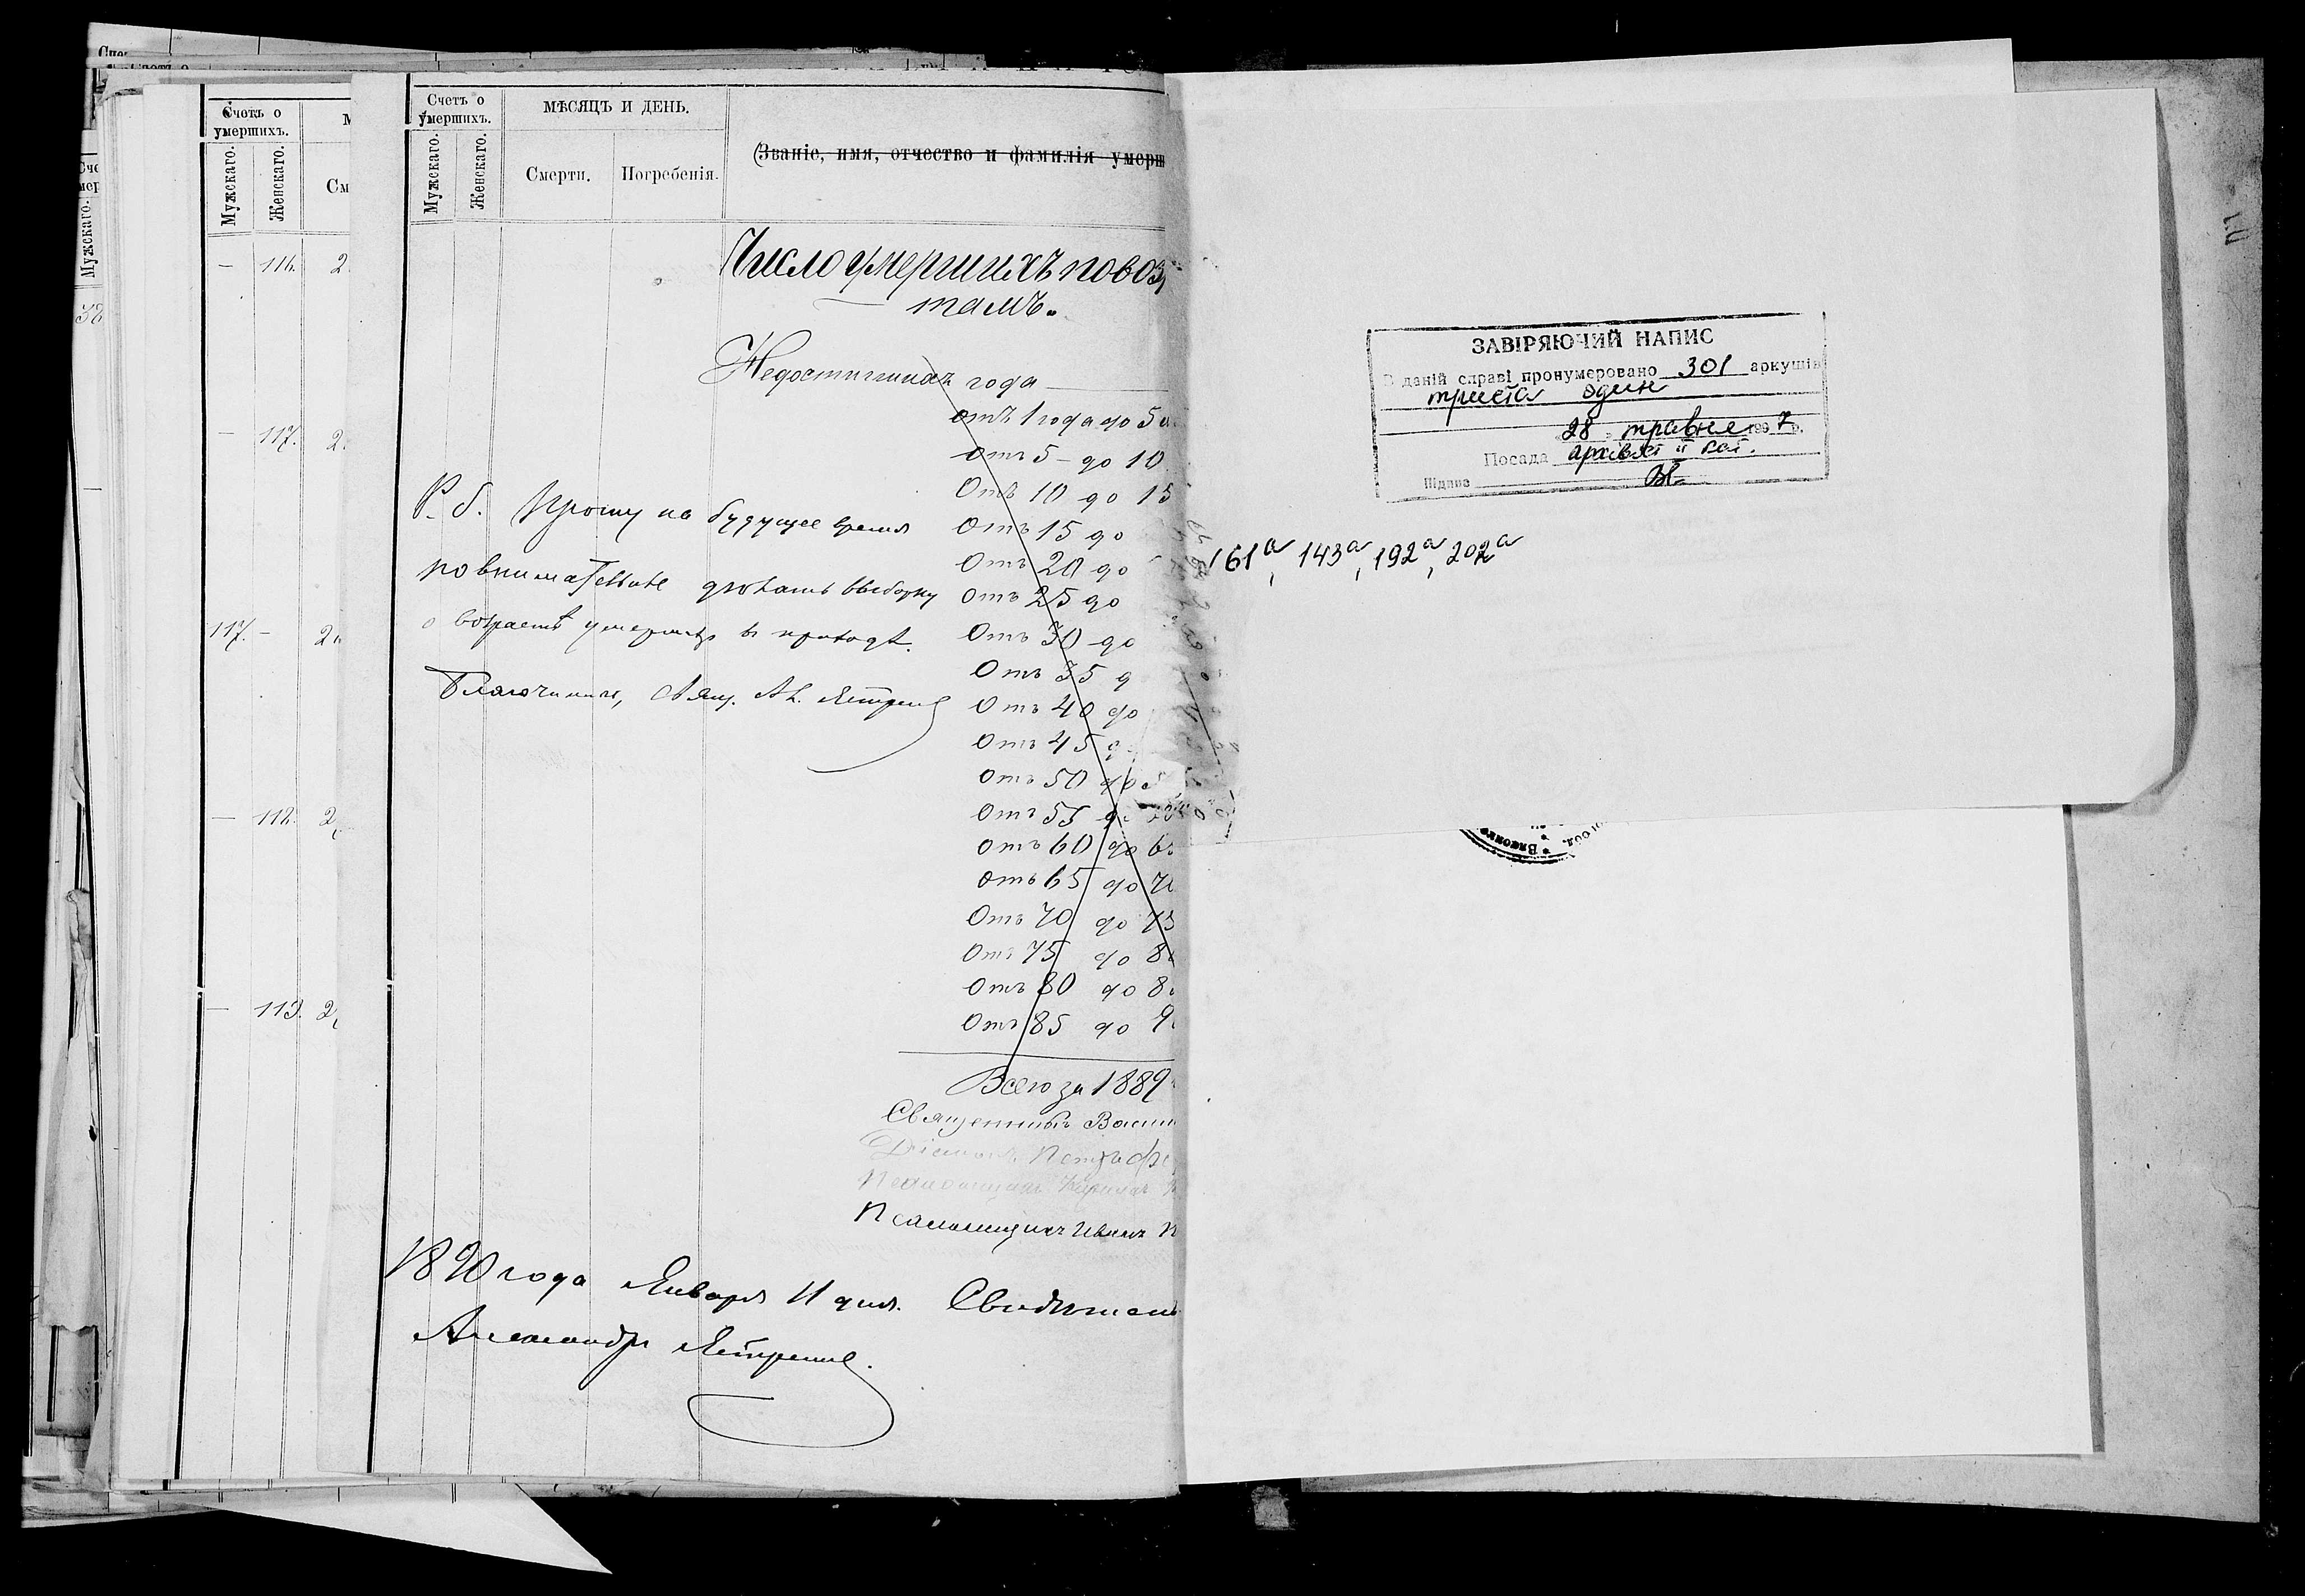 Счетъ о умершихъ.
Мужскаго.
Женскаго.
116.
117.
117.
112.
113.
Счетъ о умершихъ.
Мужскаго.
Женскаго.
МѢСЯЦЪ И ДЕНЬ.
Смерти.
Погребенія.
(Званіе, имя, отчество и фамилія умерш
Число умершихъ по воз
тамъ.
Недостигшихъ года
отъ 1 года до 5
Отъ 5 - до 10
Отъ 10 до 15
Отъ 15 до
Отъ 20 до
Отъ 25 до
Отъ 30 до
Отъ 35 д
Отъ 40 до
Отъ 45 д
Отъ 50 до
Отъ 55
Отъ 60 до 65
Отъ 65 до 70
Отъ 70 до 75
Отъ 75 до 8
Отъ 80 до 8
Отъ 85 до 9
Всего за 1889
Священникъ Васи
Діаконъ Петръ
Псаломщикъ
Псаломщикъ Иванъ
P. S. Прошу на будущее время
повнимательне дѣлать выборку
о возрастѣ умершихъ въ приходѣ.
Благочинный, Свящ. Ал.
1890 года Января 11 дня. Свидѣтель
Александръ
ЗАВІРЯЮЧИЙ НАПИС
В даній справі пронумеровано 301 аркушів
триста один
28 травня 1997 р.
Посада архівіст II кат.
Підпис
161а, 143а, 192а, 202а